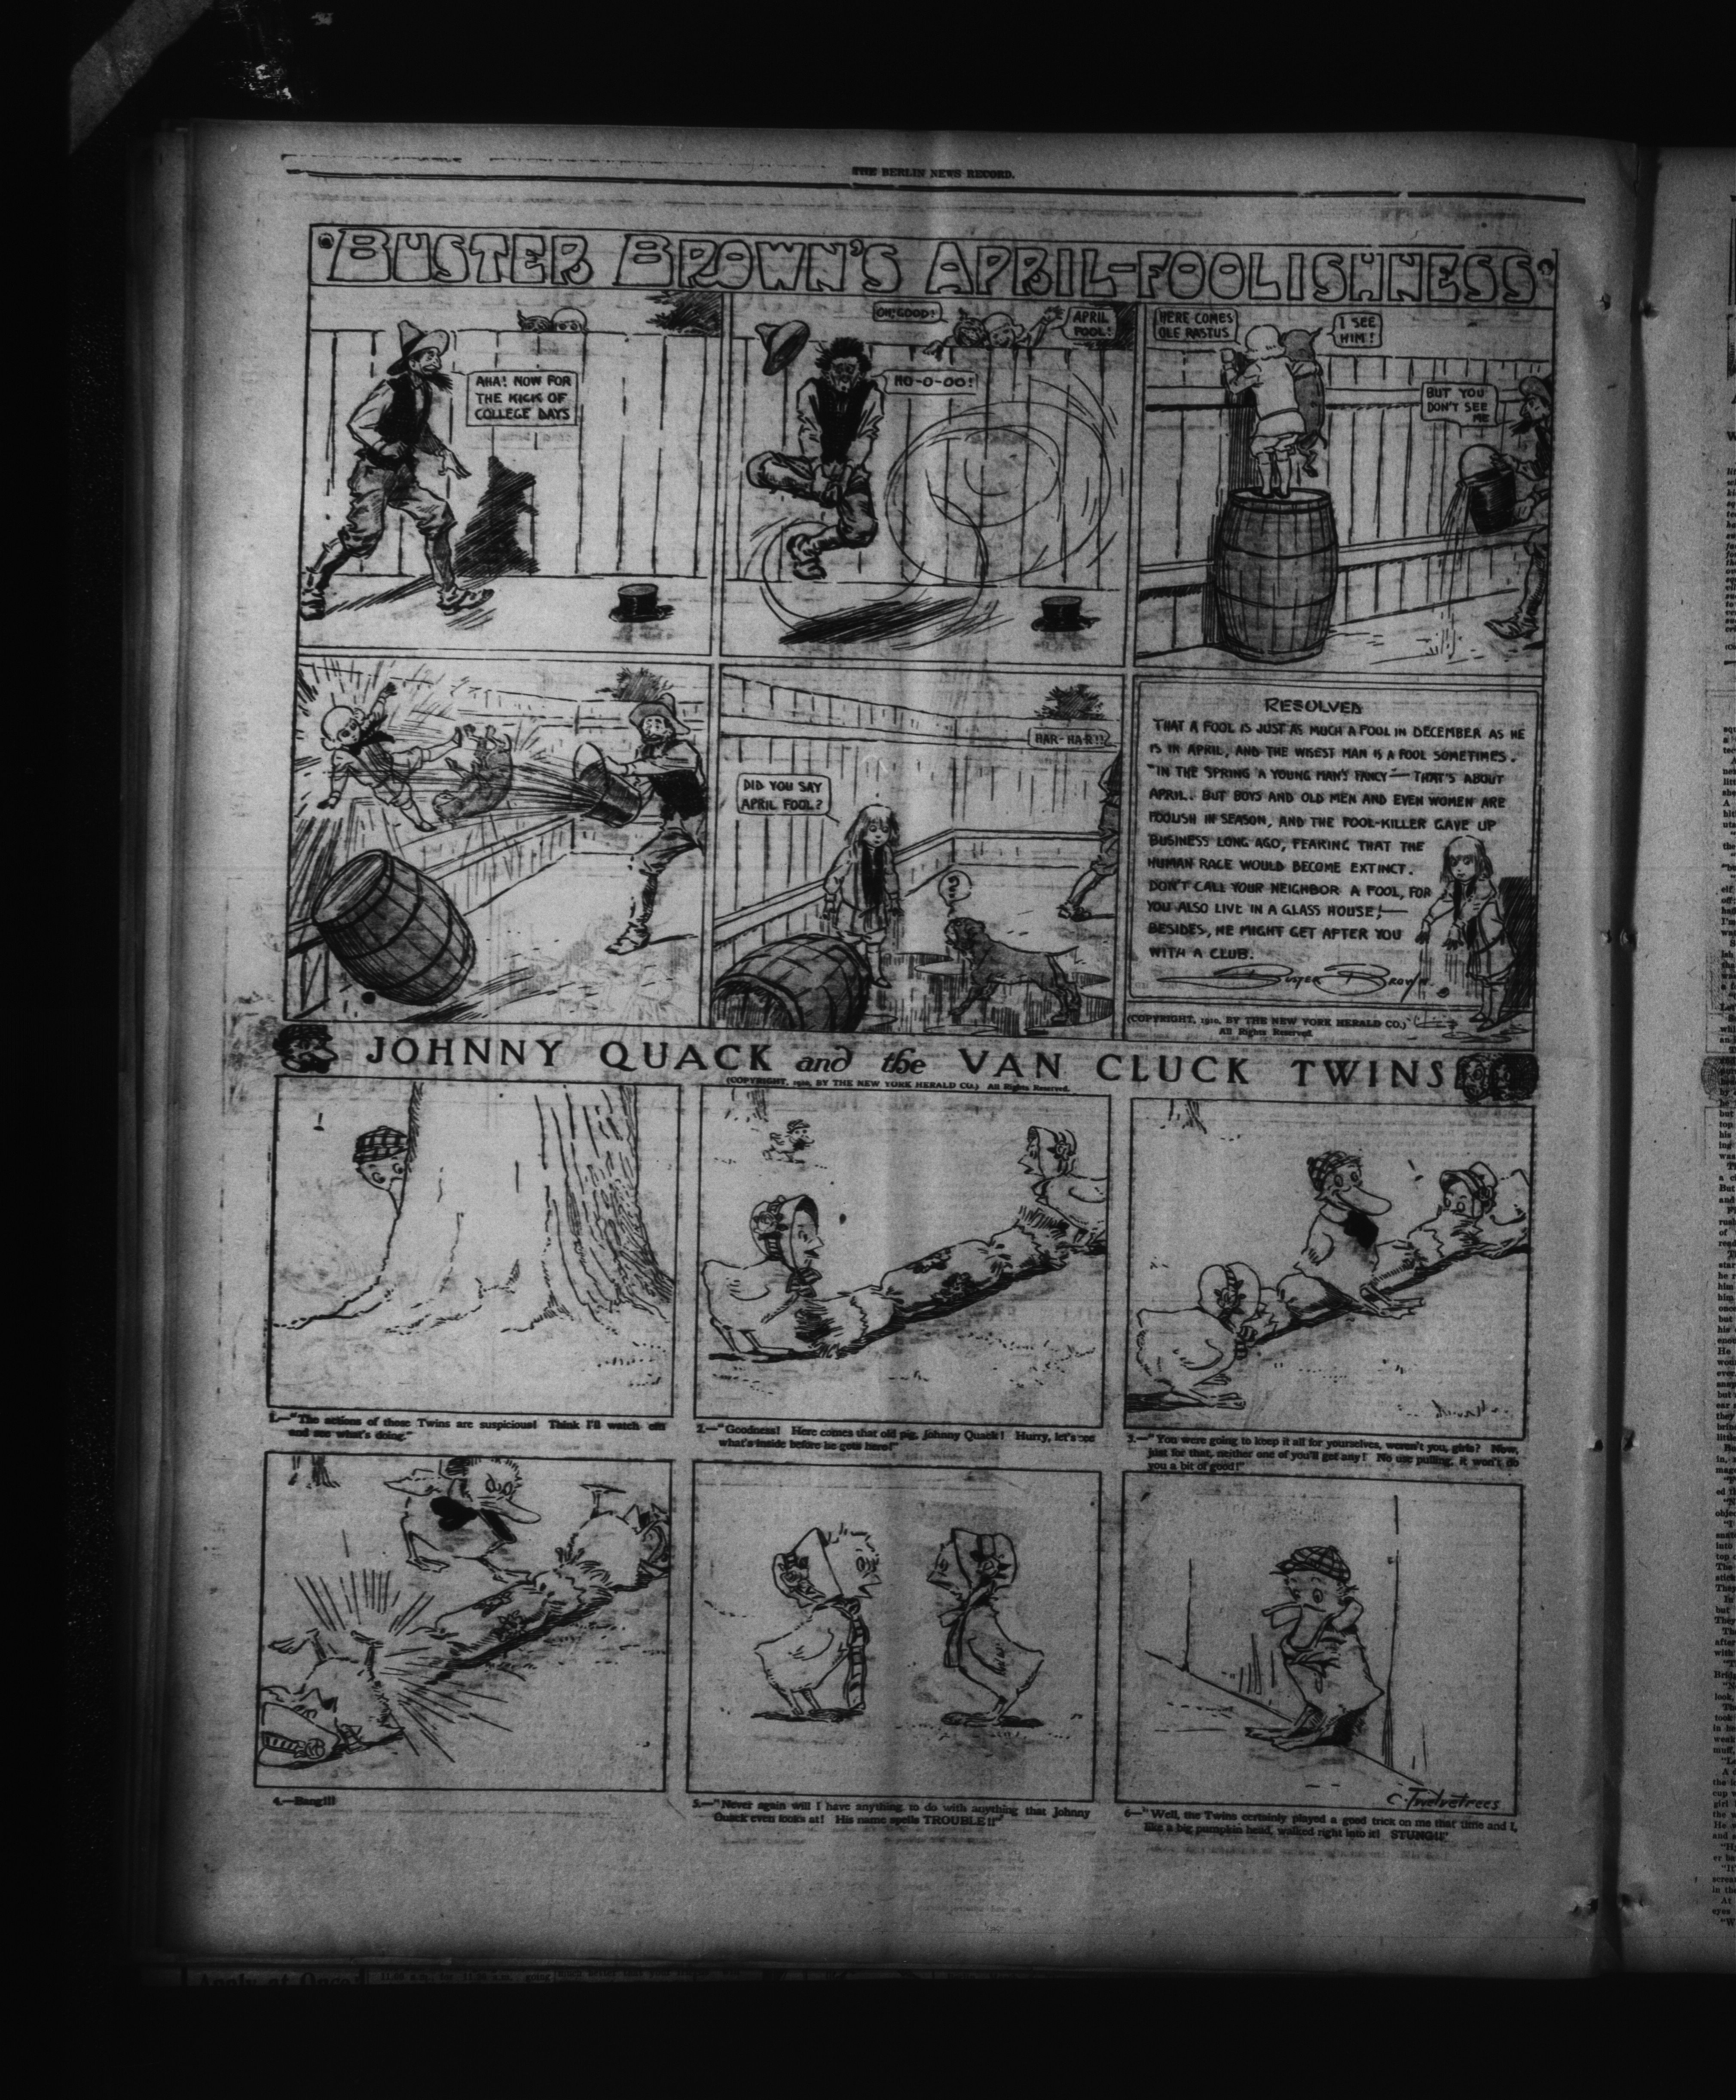 THE BERLIN NEWS RECORD.
BUSTER BROWN'S APRIL-FOOLISHNESS
AHA! NOW FOR
THE KICK OF
COLLEGE DAYS
OH, GOOD!
APRIL
FOOL!
HO-O-OO!
HERE COMES
OLE RASTUS
I SEE
HIM!
BUT YOU
DON'T SEE
ME
DID YOU SAY
APRIL FOOL?
HAR-HAR!!
?
RESOLVED
THAT A FOOL IS JUST AS MUCH A FOOL IN DECEMBER AS HE
IS IN APRIL, AND THE WISEST MAN IS A FOOL SOMETIMES.
"IN THE SPRING A YOUNG MAN'S FANCY"— THAT'S ABOUT
APRIL. BUT BOYS AND OLD MEN AND EVEN WOMEN ARE
FOOLISH IN SEASON, AND THE FOOL-KILLER GAVE UP
BUSINESS LONG AGO, FEARING THAT THE
HUMAN RACE WOULD BECOME EXTINCT.
DON'T CALL YOUR NEIGHBOR A FOOL, FOR
YOU ALSO LIVE IN A GLASS HOUSE;—
BESIDES, HE MIGHT GET AFTER YOU
WITH A CLUB.
BUSTER BROWN.
(COPYRIGHT, 1910, BY THE NEW YORK HERALD CO.)
All Rights Reserved.
JOHNNY QUACK and the VAN CLUCK TWINS
(COPYRIGHT, 1910, BY THE NEW YORK HERALD CO.) All Rights Reserved.
1.—"The actions of those Twins are suspicious! Think I'll watch 'em
and see what's doing."
2.—"Goodness! Here comes that old pig, Johnny Quack! Hurry, let's see
what's inside before he gets here!"
3.—"You were going to keep it all for yourselves, weren't you, girls? Now,
just for that, neither one of you'll get any! No use pulling, it won't do
you a bit of good!"
4.—Bang!!!
5.—"Never again will I have anything to do with anything that Johnny
Quack even looks at! His name spells TROUBLE!!"
C. Twelvetrees
6—"Well, the Twins certainly played a good trick on me that time and I,
like a big pumpkin head, walked right into it! STUNG!!"